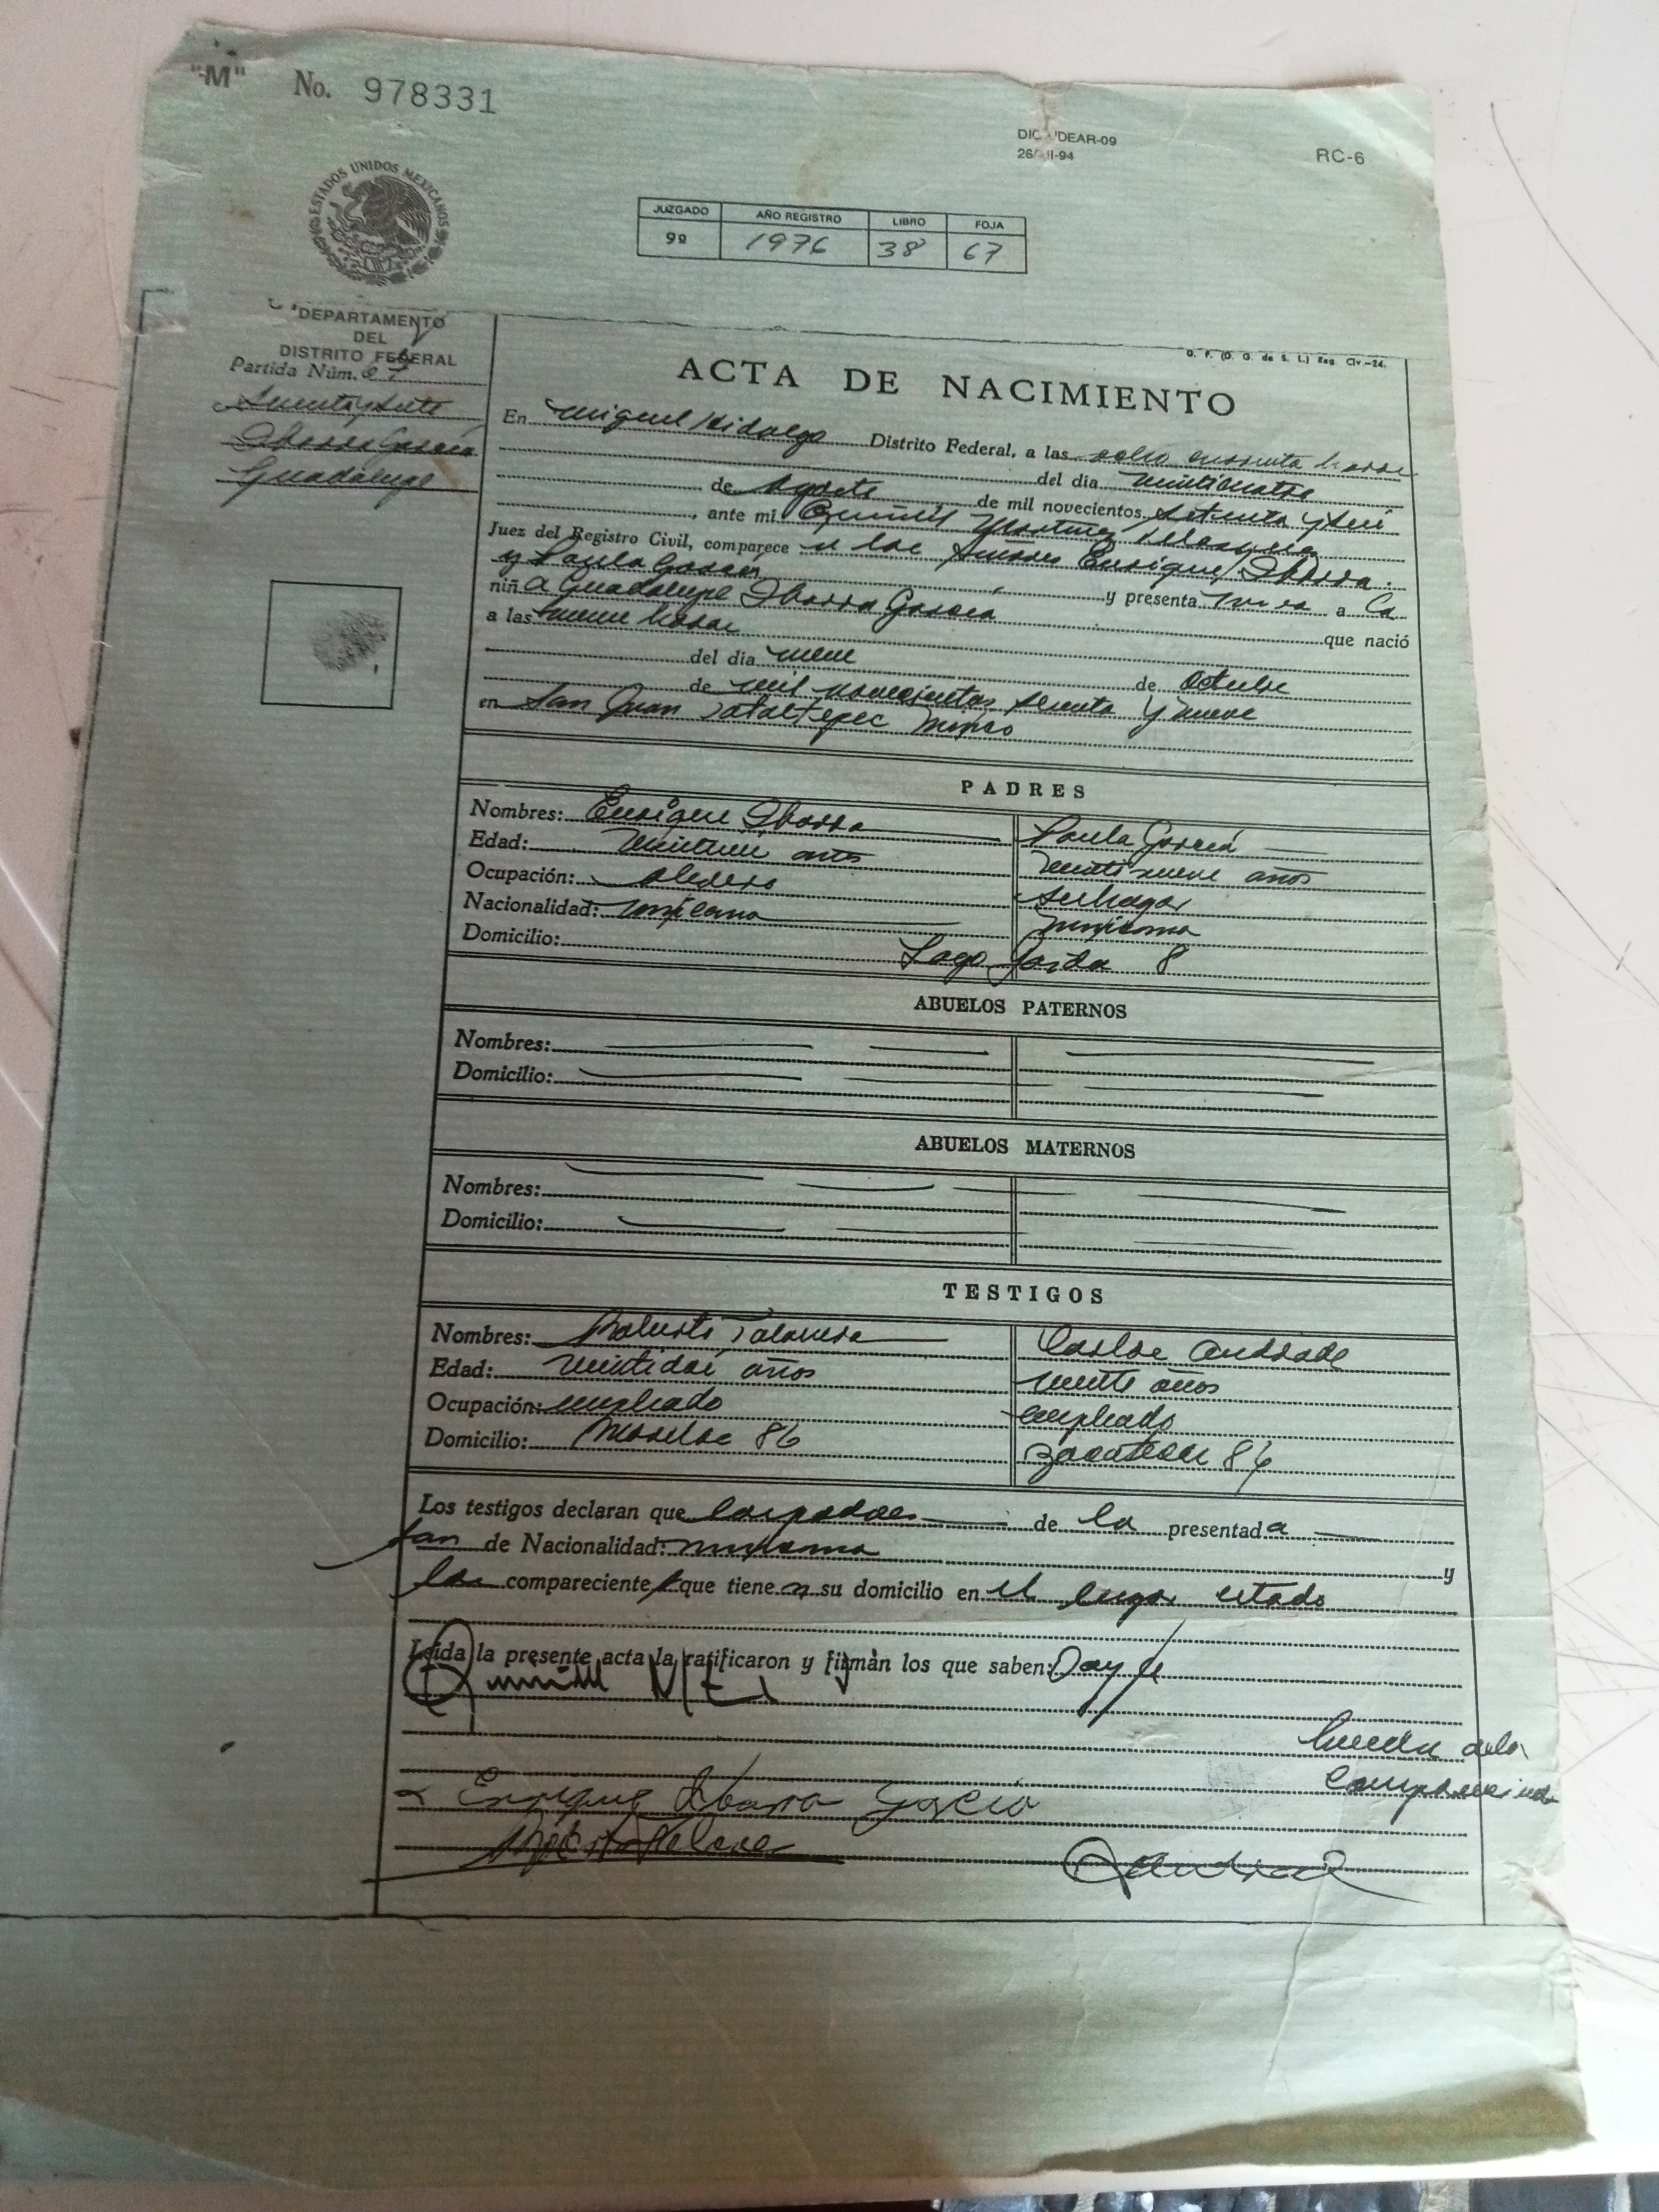 "M" No. 978331
26/ II-94
RC-6
ESTADOS UNIDOS MEXICANOS
JUZGADO AÑO REGISTRO LIBRO FOJA
9º 1976 38 67
DEPARTAMENTO
DEL
DISTRITO FEDERAL
Partida Núm. 67
Ibarra García
Guadalupe
O. F. (D. G. de S. L.) Reg. Civ.-24.
ACTA DE NACIMIENTO
En Miguel Hidalgo Distrito Federal, a las ocho cuarenta horas
del dia veinticuatro
de Agosto de mil novecientos setenta y seis
, ante mi Martínez Velazquez
Juez del Registro Civil, comparece n los Señores Enrique Ibarra
y Paula García y presenta viva a la
niña Guadalupe Ibarra García que nació
a las nueve horas
del dia nueve de Octubre
de mil novecientos sesenta y nueve
en San Juan México
PADRES
Nombres: Enrique Ibarra Paula García
Edad: años veintinueve años
Ocupación: su hogar
Nacionalidad: mexicana mexicana
Domicilio: Lago 8
ABUELOS PATERNOS
Nombres:
Domicilio:
ABUELOS MATERNOS
Nombres:
Domicilio:
TESTIGOS
Nombres: Roberto Talavera Carlos Andrade
Edad: veintidos años veinte años
Ocupación: empleado empleado
Domicilio: Morelos 86 86
Los testigos declaran que los padres de la presentada
son de Nacionalidad: mexicana y
los comparecientes que tienen su domicilio en el lugar citado
Leida la presente acta la ratificaron y firman los que saben: Doy fe
Huella de la
compareciente
Enrique Ibarra García